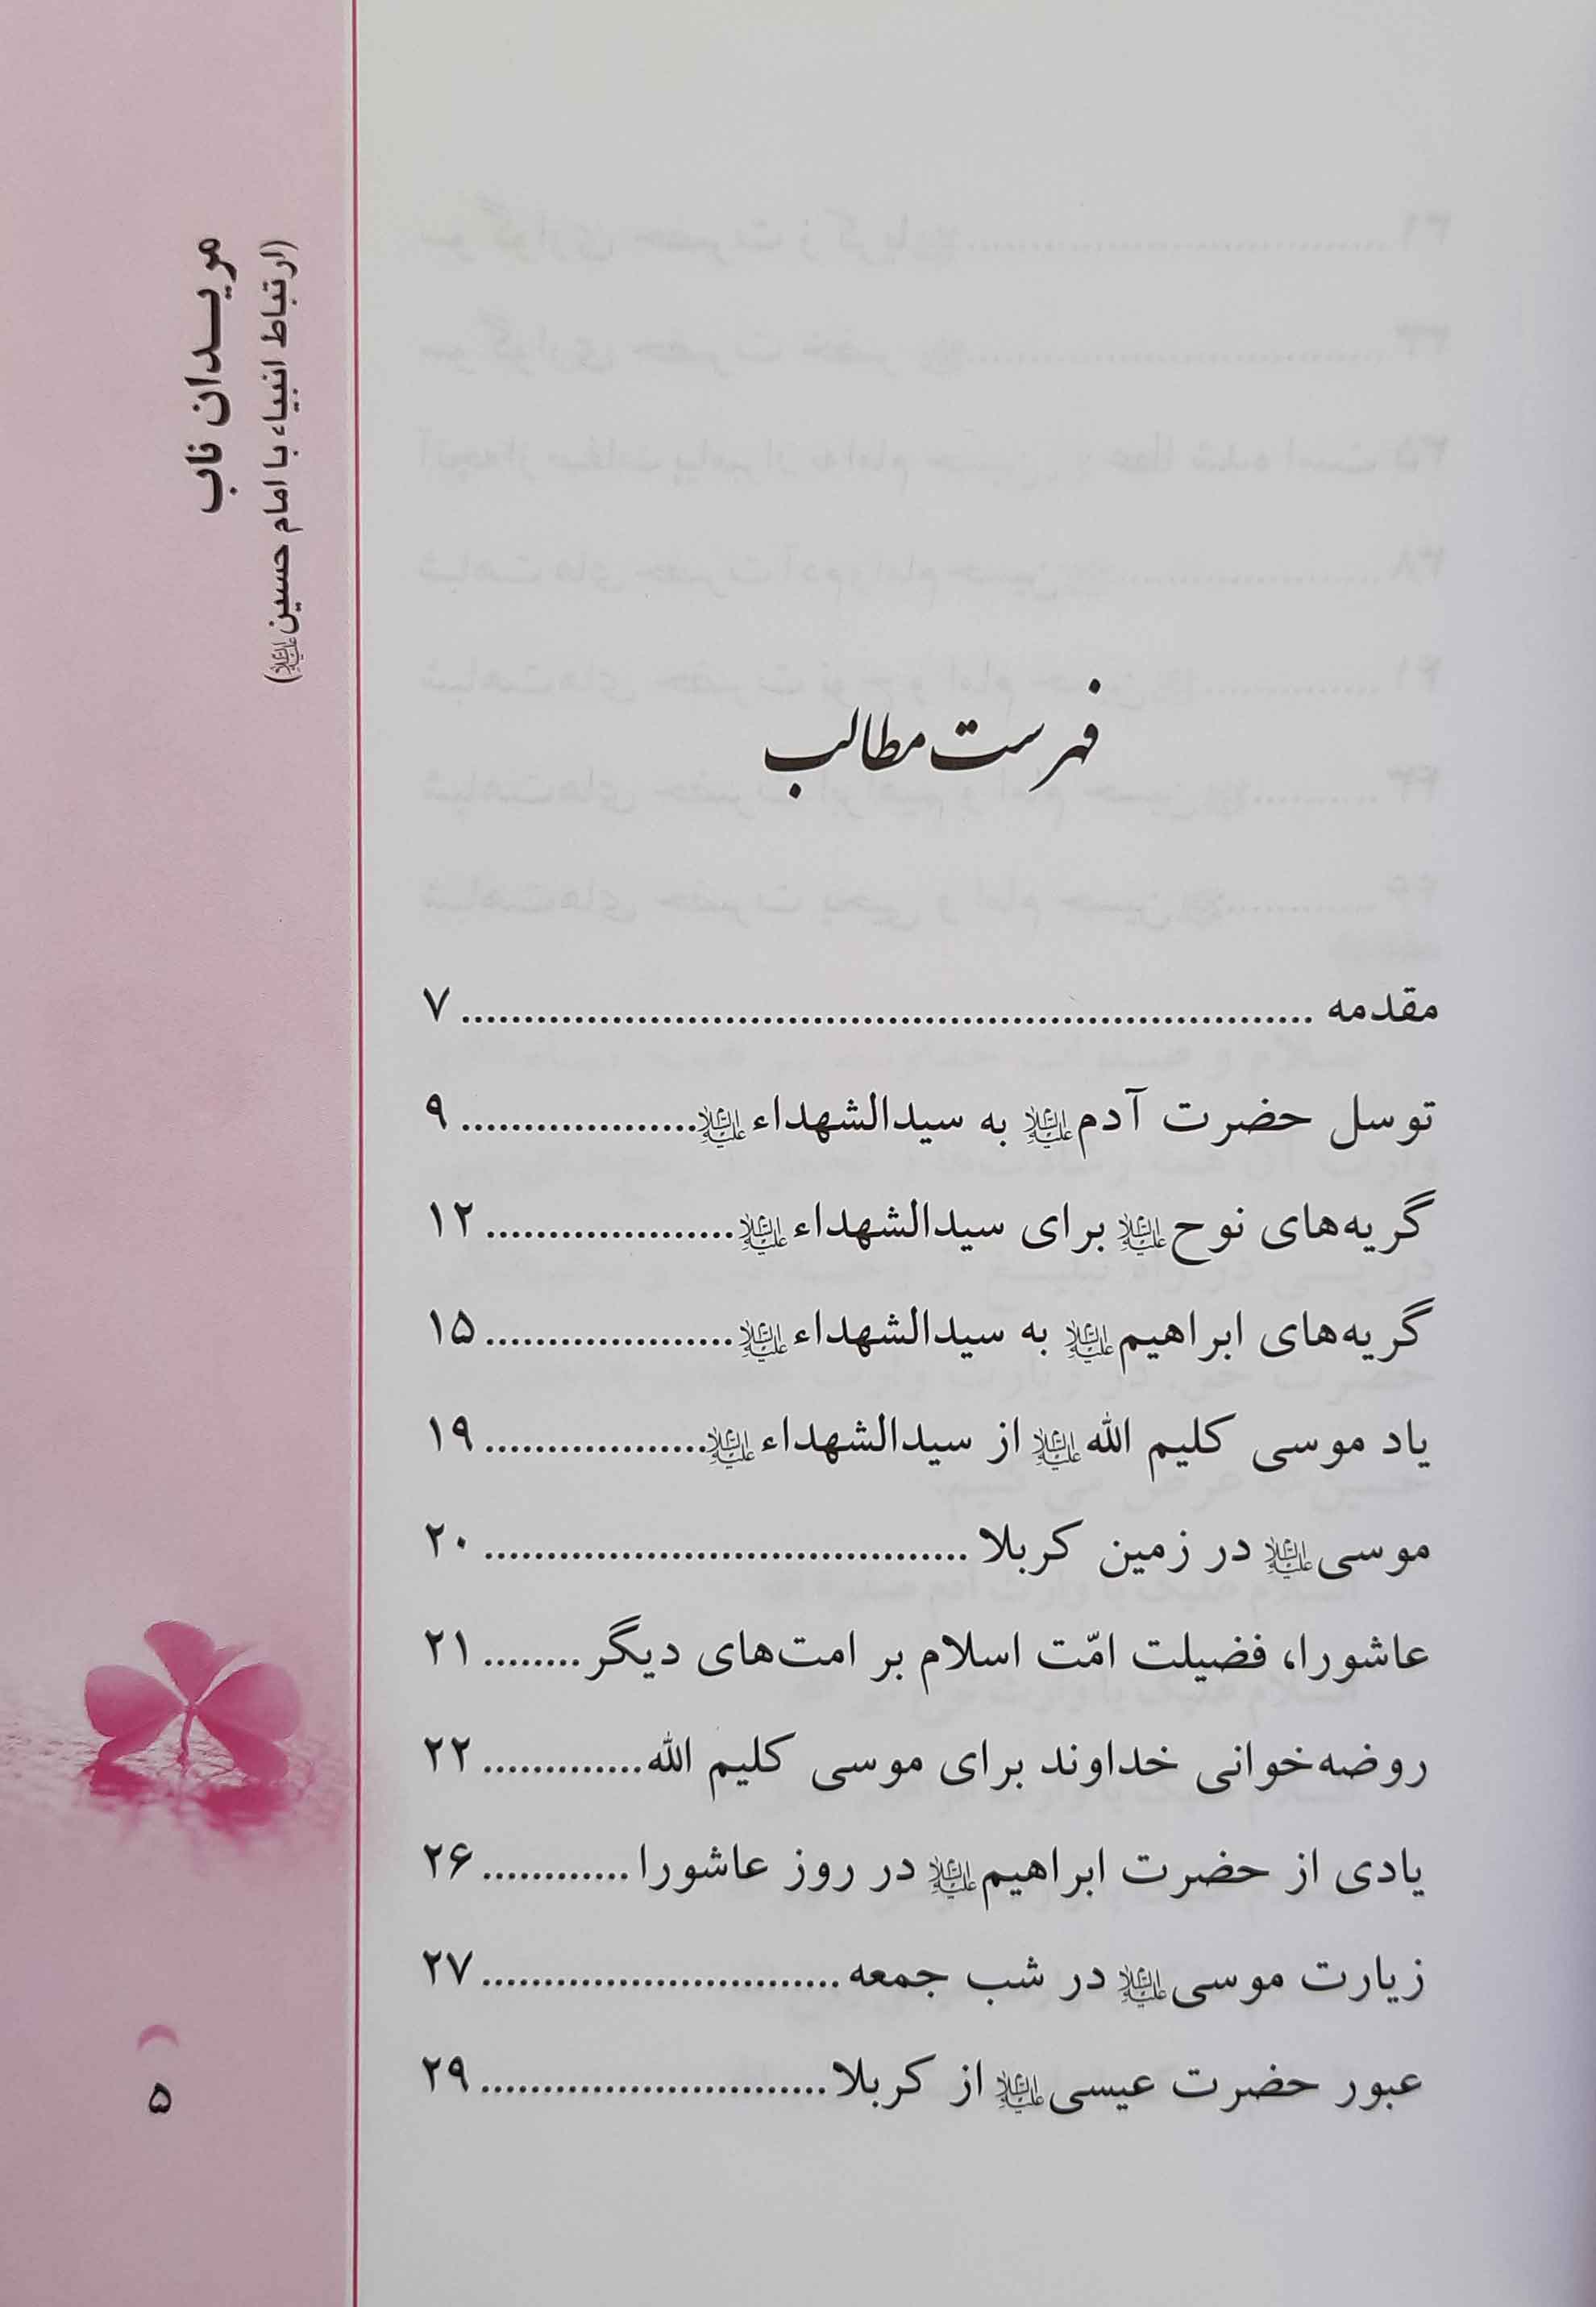 مریدان ناب
(ارتباط انبیاء با امام حسین علیه‌السلام)
فهرست مطالب
مقدمه ........................................ ۷
توسل حضرت آدم علیه‌السلام به سیدالشهداء علیه‌السلام................... ۹
گریه‌های نوح علیه‌السلام برای سیدالشهداء علیه‌السلام.................... ۱۲
گریه‌های ابراهیم علیه‌السلام به سیدالشهداء علیه‌السلام.................... ۱۵
یاد موسی کلیم الله علیه‌السلام از سیدالشهداء علیه‌السلام.................. ۱۹
موسی علیه‌السلام در زمین کربلا ....................................... ۲۰
عاشورا، فضیلت امّت اسلام بر امت‌های دیگر........ ۲۱
روضه‌خوانی خداوند برای موسی کلیم الله............. ۲۲
یادی از حضرت ابراهیم علیه‌السلام در روز عاشورا............ ۲۶
زیارت موسی علیه‌السلام در شب جمعه............................. ۲۷
عبور حضرت عیسی علیه‌السلام از کربلا............................ ۲۹
۵